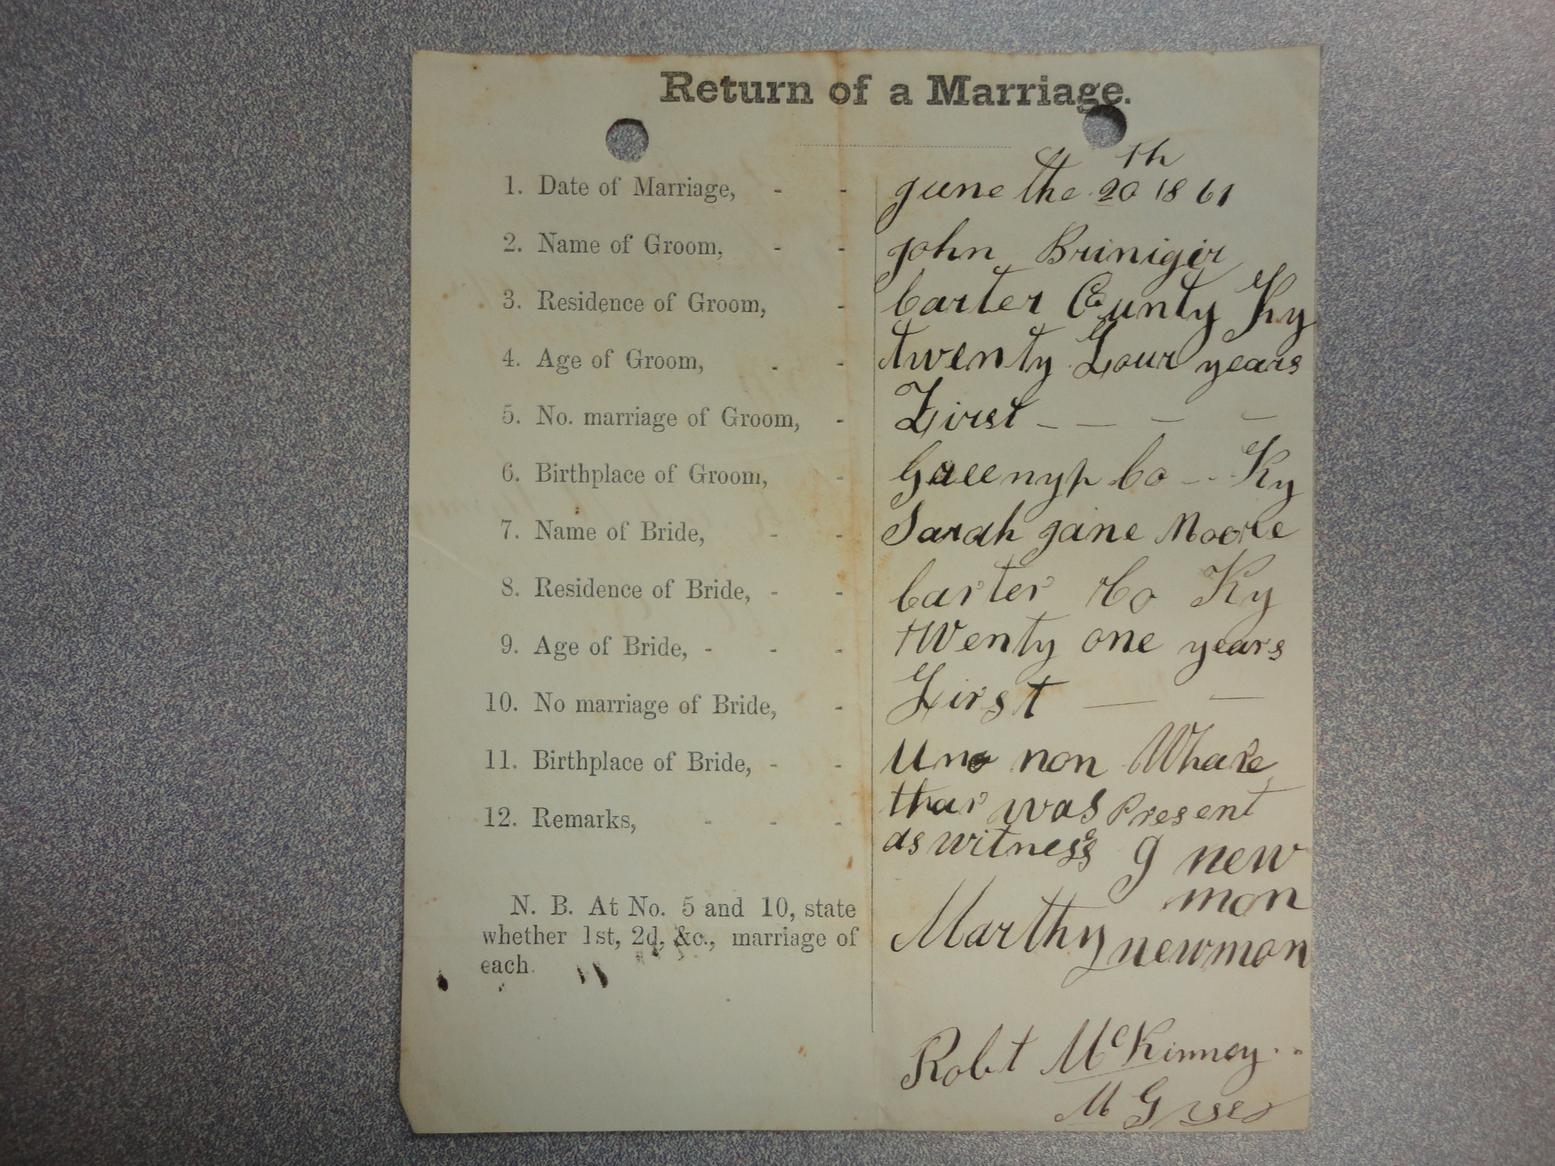 Return of a Marriage.
1. Date of Marriage, - - june the 20th 1861
2. Name of Groom, - - john Briniger
3. Residence of Groom, - Carter County Ky
4. Age of Groom, - - twenty Four years
5. No. marriage of Groom, - First - - - -
6. Birthplace of Groom, - Greenyp Co -- Ky
7. Name of Bride, - - Sarah jane Moore
8. Residence of Bride, - - Carter Co Ky
9. Age of Bride, - - - twenty one years
10. No marriage of Bride, - First - -
11. Birthplace of Bride, - - Un non Whare
12. Remarks, - - - thar was Present
as witness J new
mon
N. B. At No. 5 and 10, state
whether 1st, 2d, &c., marriage of
each.
Marthy newmon
Robt McKinney
M G